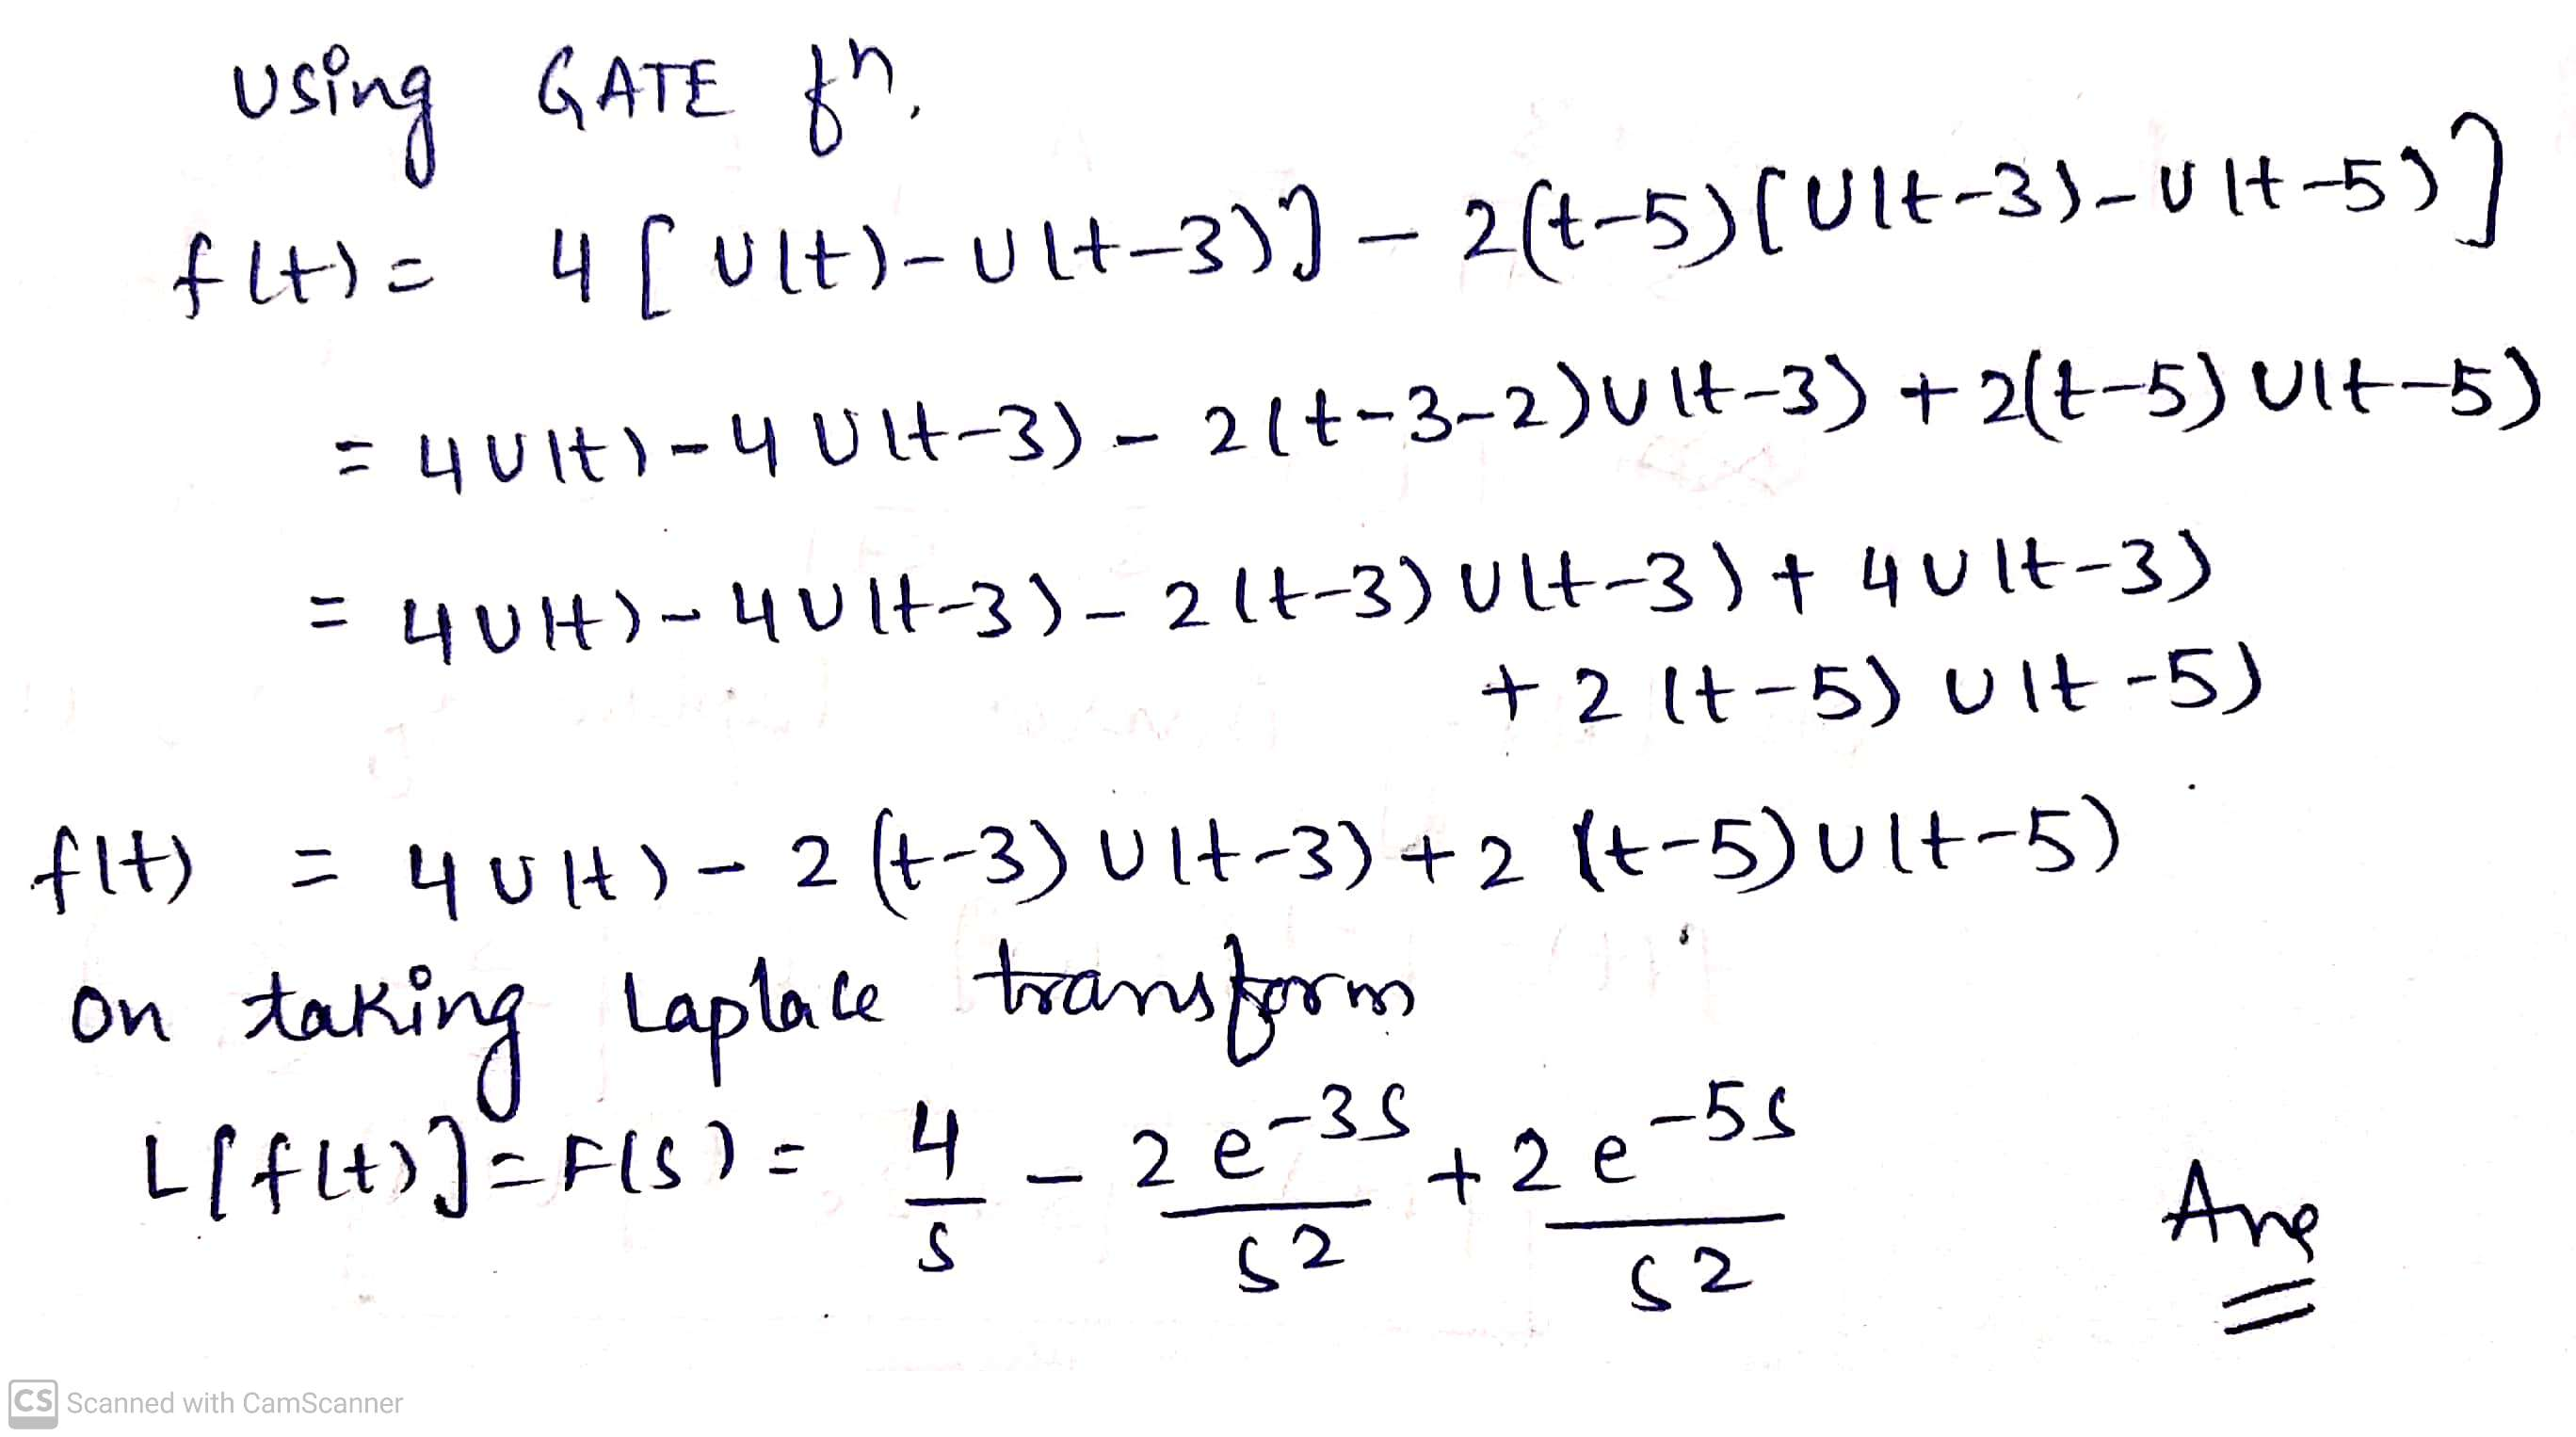 Using GATE fn.
f(t) = 4[U(t)-U(t-3)] - 2(t-5)[U(t-3)-U(t-5)]
= 4U(t)-4U(t-3) - 2(t-3-2)U(t-3) + 2(t-5)U(t-5)
= 4U(t)-4U(t-3) - 2(t-3)U(t-3) + 4U(t-3)
+ 2(t-5)U(t-5)
f(t) = 4U(t) - 2(t-3)U(t-3) + 2(t-5)U(t-5)
on taking Laplace transform
L[f(t)] = F(s) = 4/s - 2e^-3s/s^2 + 2e^-5s/s^2
Ans
CS Scanned with CamScanner